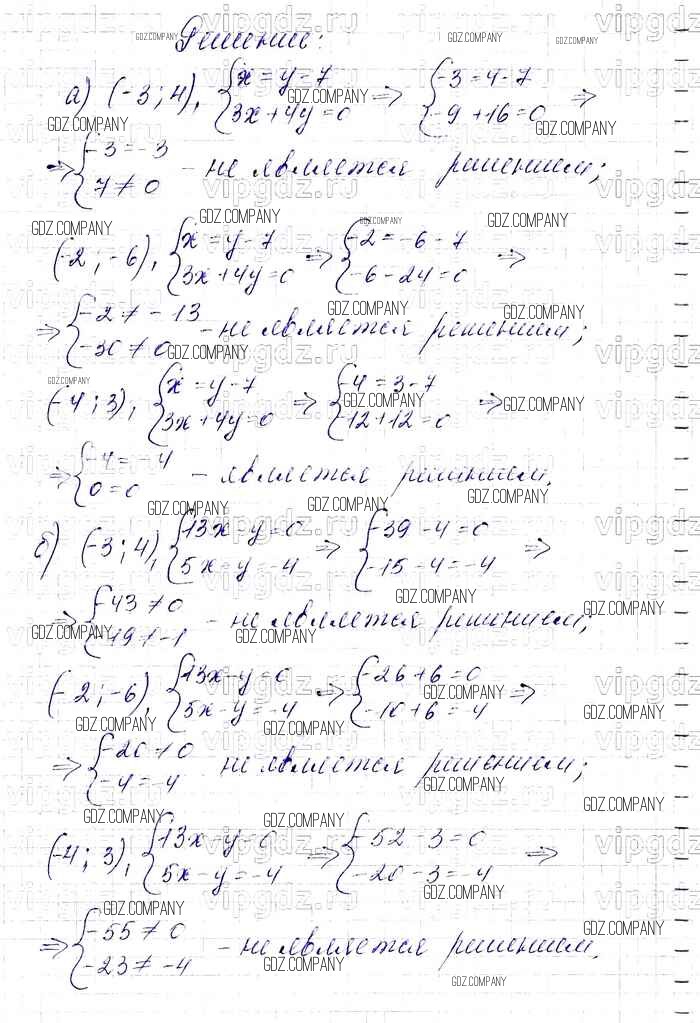 Решение:
а) (-3; 4), { x = y - 7 ; 3x + 4y = 0 => { -3 = 4 - 7 ; -9 + 16 = 0 =>
=> { -3 = -3 ; 7 ≠ 0 - не является решением;
(-2; -6), { x = y - 7 ; 3x + 4y = 0 => { -2 = -6 - 7 ; -6 - 24 = 0 =>
=> { -2 ≠ -13 ; -30 ≠ 0 - не является решением;
(-4; 3), { x = y - 7 ; 3x + 4y = 0 => { -4 = 3 - 7 ; -12 + 12 = 0 =>
=> { -4 = -4 ; 0 = 0 - является решением.
б) (-3; 4), { 13x - y = 0 ; 5x - y = -4 => { -39 - 4 = 0 ; -15 - 4 = -4 =>
=> { -43 ≠ 0 - не является решением;
(-2; -6), { 13x - y = 0 ; 5x - y = -4 => { -26 + 6 = 0 ; -10 + 6 = -4 =>
=> { -20 ≠ 0 ; -4 = -4 не является решением;
(-4; 3), { 13x - y = 0 ; 5x - y = -4 => { -52 - 3 = 0 ; -20 - 3 = -4 =>
=> { -55 ≠ 0 ; -23 ≠ -4 - не является решением.
GDZ.COMPANY
vipgdz.ru